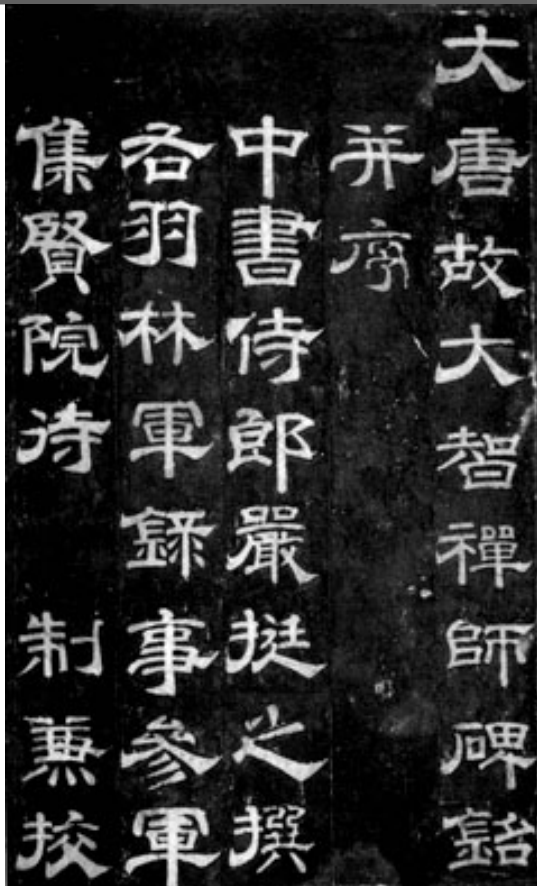 大唐故大智禪師碑銘
并序
中書侍郎嚴挺之撰
右羽林軍錄事參軍
集賢院待制兼挍